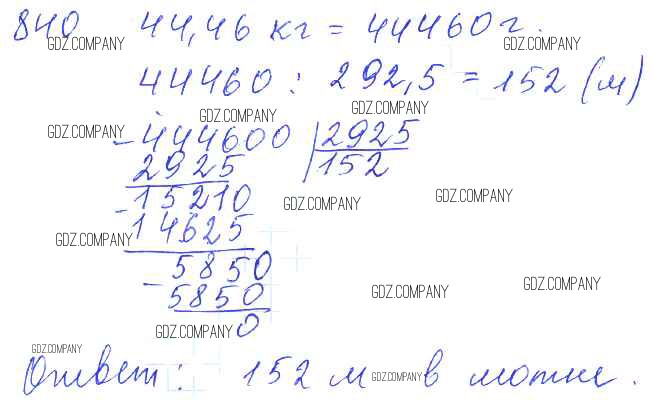 840 44,46 кг = 44460 г.
GDZ.COMPANY GDZ.COMPANY
44460 : 292,5 = 152 (м)
GDZ.COMPANY GDZ.COMPANY
GDZ.COMPANY - 444600 | 2925
2925 152
- 15210 GDZ.COMPANY GDZ.COMPANY
14625
GDZ.COMPANY
- 5850
5850 GDZ.COMPANY GDZ.COMPANY
GDZ.COMPANY 0
GDZ.COMPANY
Ответ: 152 м GDZ.COMPANY в мотке.